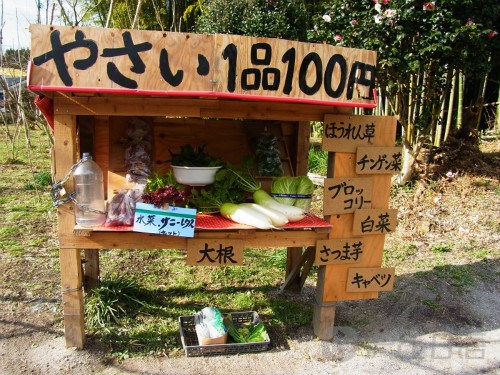 やさい 1品100円
ほうれん草
チンゲン菜
ブロッ
コリー
白菜
さつま芋
キャベツ
大根
水菜、サニーレタス